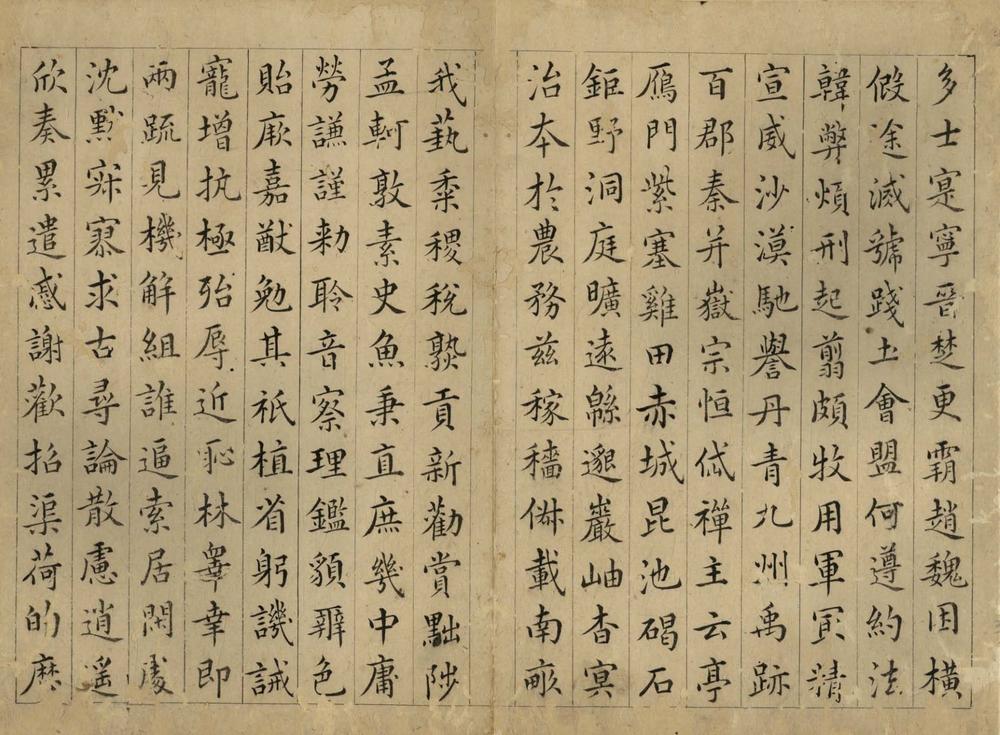 多士寔寧晉楚更霸趙魏困橫
假途滅虢踐土會盟何遵約法
韓弊煩刑起翦頗牧用軍㝡精
宣威沙漠馳譽丹青九州禹跡
百郡秦并嶽宗恒岱禪主云亭
鴈門紫塞雞田赤城昆池碣石
鉅野洞庭曠遠緜邈巖岫杳冥
治本於農務茲稼穡俶載南畝
我藝黍稷稅熟貢新勸賞黜陟
孟軻敦素史魚秉直庶幾中庸
勞謙謹勑聆音察理鑑貌辨色
貽厥嘉猷勉其祗植省躬譏誡
寵增抗極殆辱近恥林皋幸即
兩疏見機解組誰逼索居閑處
沈默寂寥求古尋論散慮逍遥
欣奏累遣慼謝歡招渠荷的歷